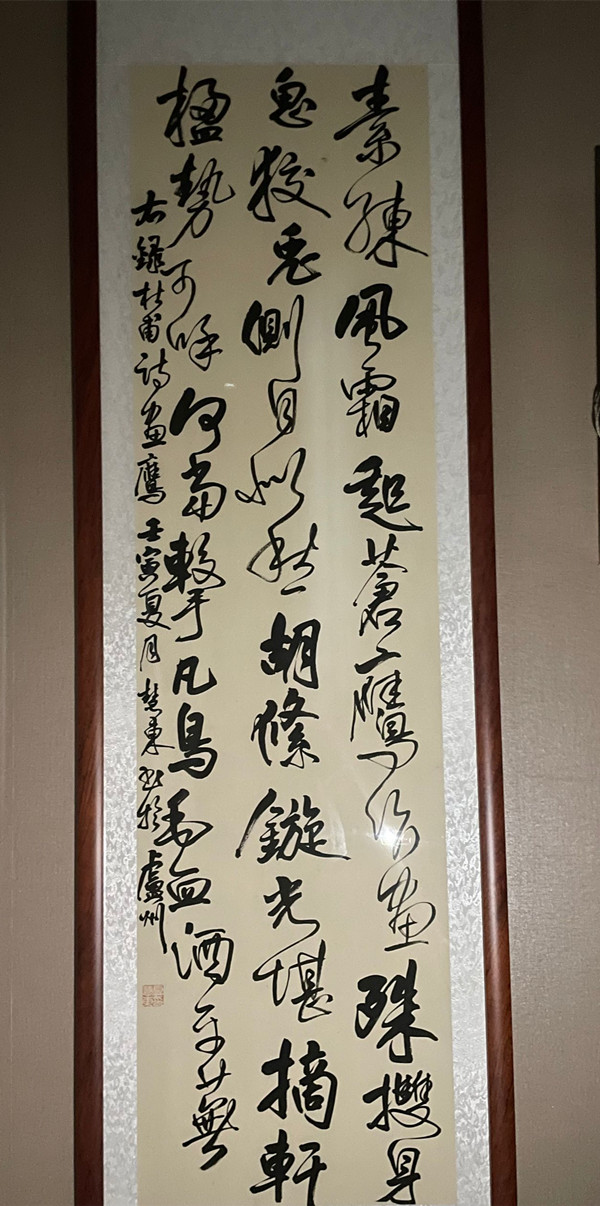 素練風霜起蒼鷹作畫殊身
思狡兔側目似愁胡絛鏇光堪摘軒
楹勢可呼何當擊凡鳥毛血洒平蕪
右録杜甫詩畫鷹壬寅夏月東书於廬州